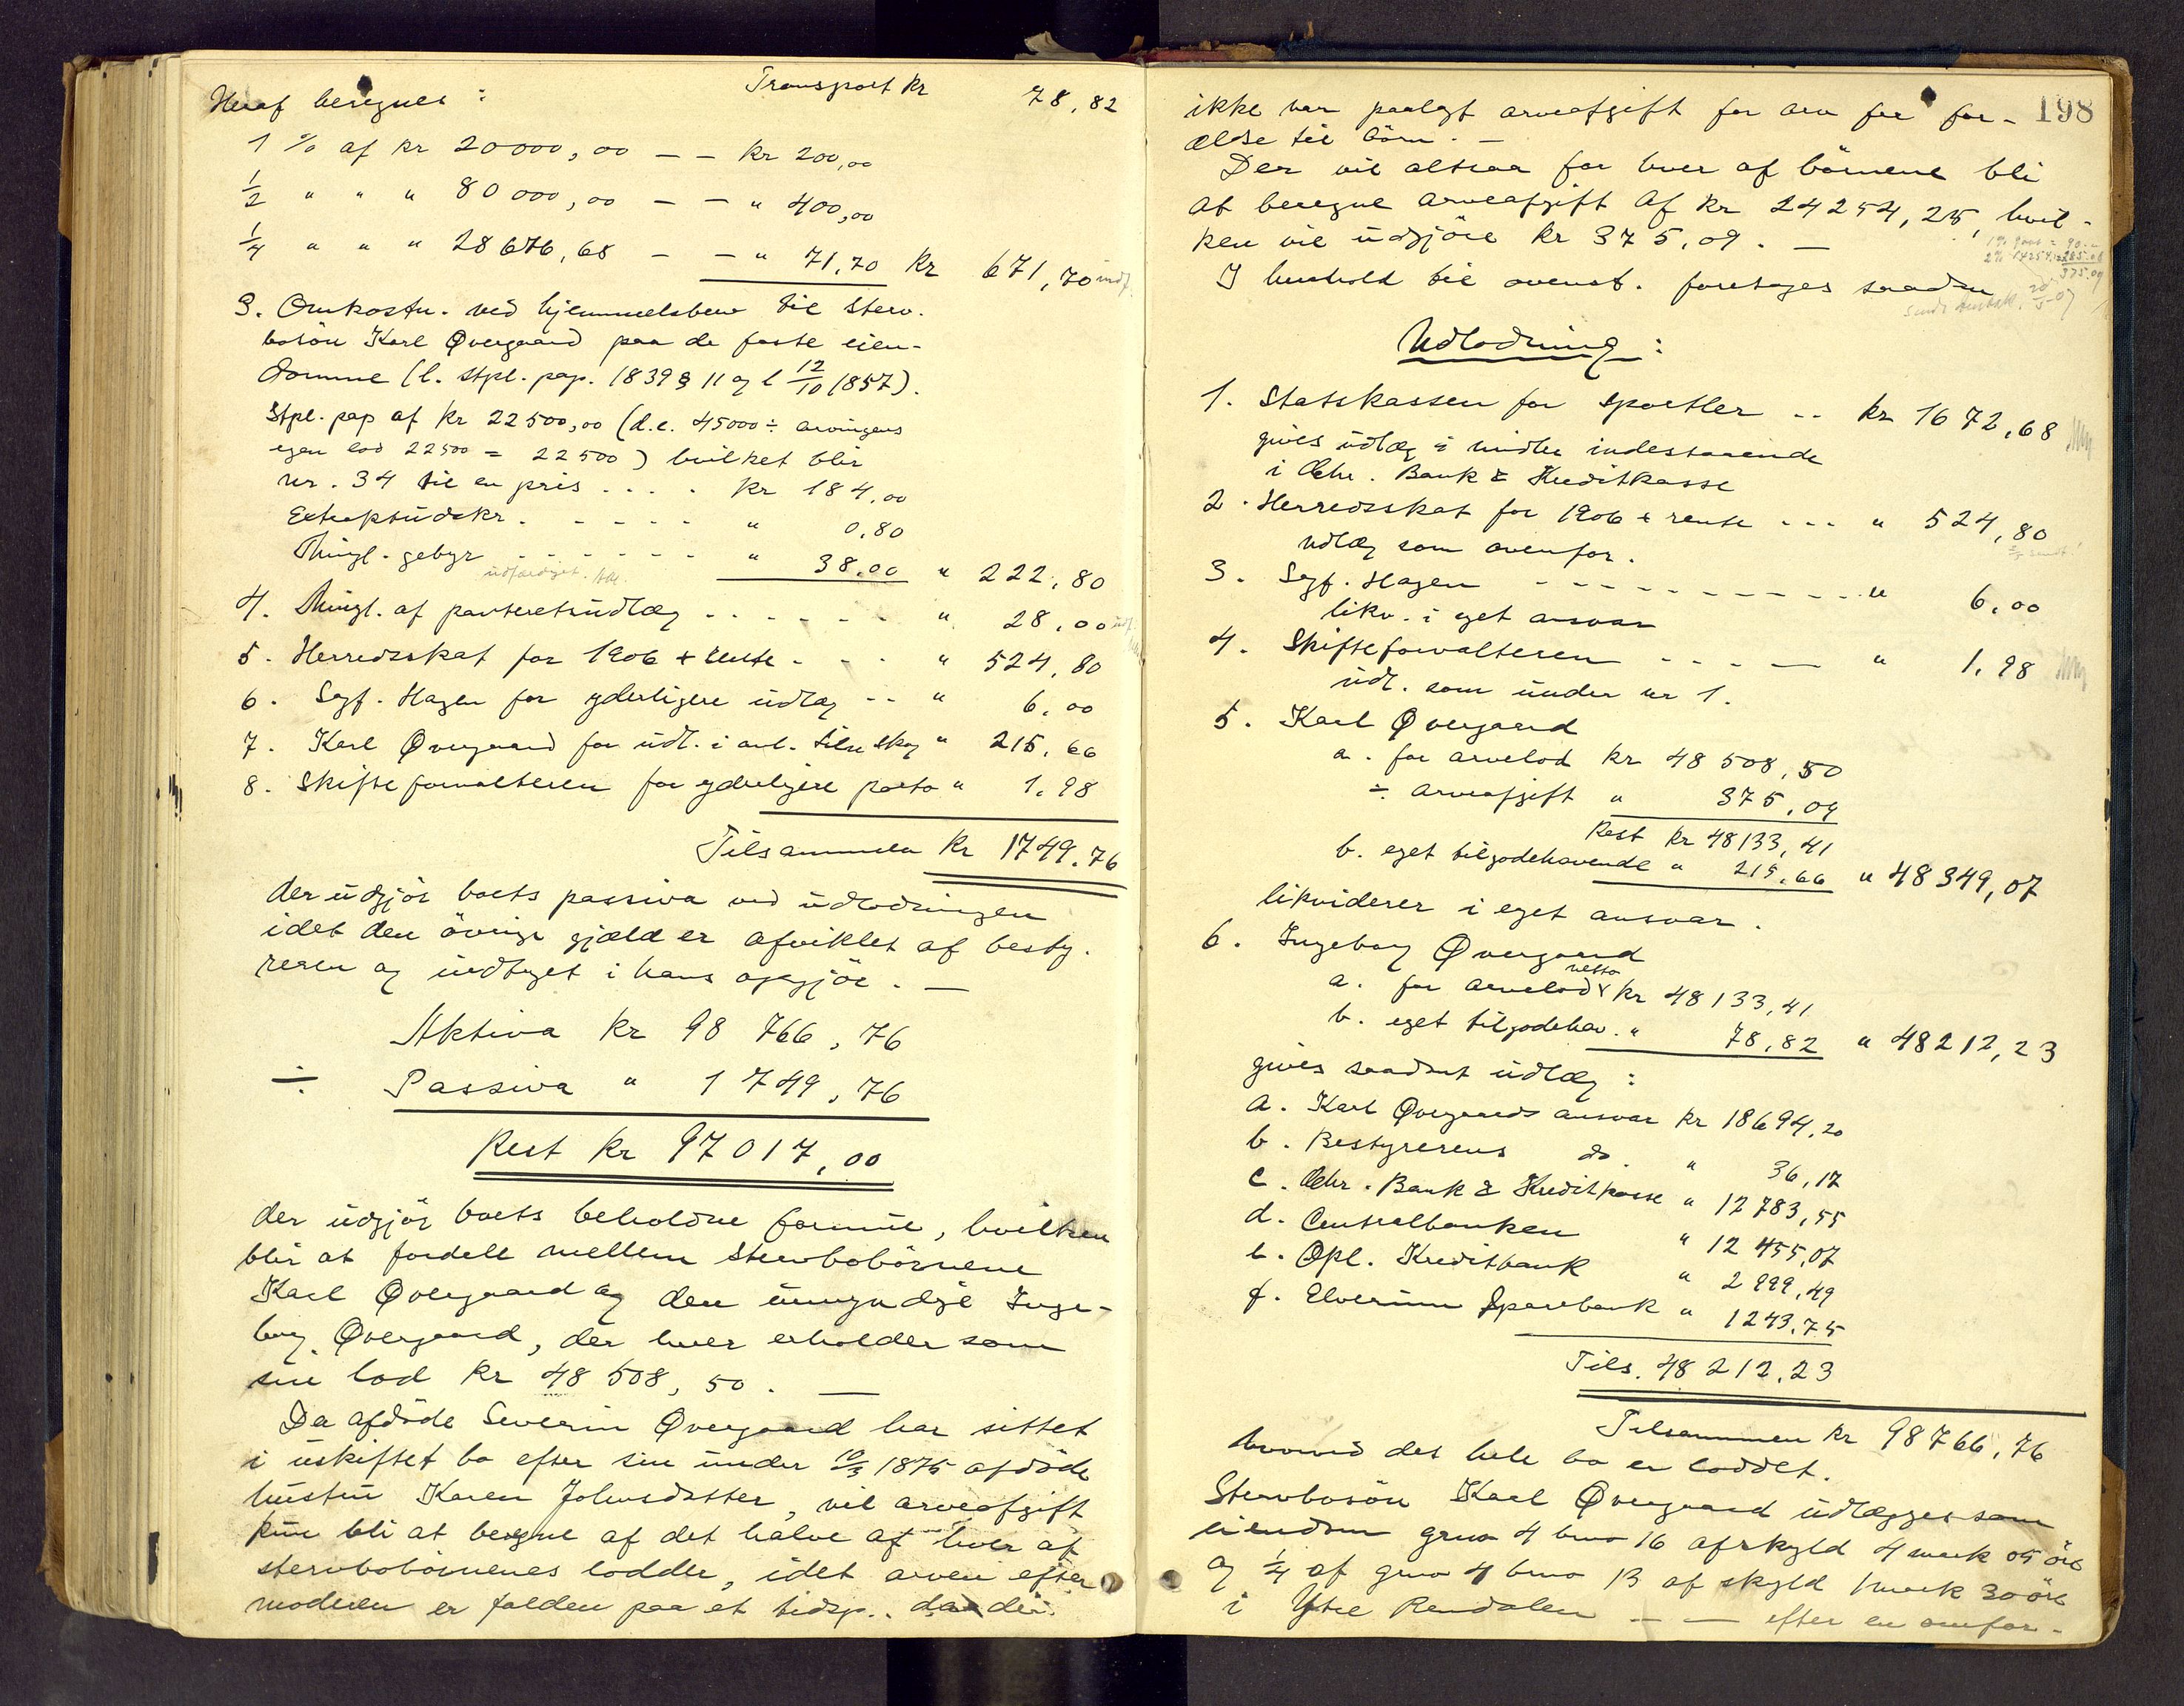 Transport kr 78,82
Heraf beregnes :
1 % af kr 20000,00 – – kr 200,00
1/2 " " " 80000,00 – – " 400,00
1/4 " " " 28676,68 – – " 71,70 kr 671,70 indf.
3. Omkostn. ved hjemmelsbrev til sterv-
bosön Karl Øvergaard paa de faste eien-
domme (l. stpl. pap. 1839 § 11 og l 12/10 1857).
Stpl. pap af kr 22500,00 (d.e. 45000 ÷ arvingens
egen lod 22500 = 22500) hvilket blir
nr. 34 til en pris . . . . kr 184,00
Extraktudskr. - - - - - " 0,80
Thingl. gebyr - - - - - - " 38.00 " 222,80
udfærdiget.
4. Thingl. af panteretsudlæg - - - - - - " 28,00 udf.
5. Herredsskat for 1906 + rente - - - " 524,80
6. Sagf. Hagen for yderligere udlæg -- " 6,00
7. Karl Øvergaard for udl. i anl. tilsu skog " 215,66
8. Skifteforvalteren for yderligere porto " 1,98
Tilsammen kr 1749.76
der udgjör boets passiva ved udlodningen
idet den övrige gjæld er afviklet af besty-
reren og indtaget i hans opgjör. —
Aktiva kr 98 766,76
÷ Passiva " 1 749,76
Rest kr 97017,00
der udgjör boets beholdne formue, hvilken
blir at fordele mellem stervbobörnene
Karl Øvergaard og den umyndige Inge-
borg Øvergaard, der hver erholder som
sin lod kr 48 508,50. —
Da afdöde Severin Øvergaard har sittet
i uskiftet bo efter sin under 10/3 1875 afdöde
hustru Karen Johnsdatter, vil arveafgift
kun bli at beregne af det halve af hver af
stervbobörnenes lodder, idet arven efter
moderen er falden paa et tidsp.. da der
198
ikke var paalagt arveafgift for arv fra for-
ældre til börn. —
Der vil altsaa for hver af börnene bli
at beregne arveafgift af kr 24254,25, hvil-
ken vil udgjöre kr 375,09. —
375.09
I henhold til ovenst. foretages saadan
Udlodning :
1. Statskassen for sportler -- kr 1672,68
gives udlæg i midler indestaaende
i Chr. Bank & Kreditkasse
2. Herredsskat for 1906 + rente - - - " 524,80
udlæg som ovenfor.
3. Sagf. Hagen - - - - - - - - - " 6,00
likv. i eget ansvar
4. Skifteforvalteren - - - - — " 1,98
udl. som under nr 1.
5. Karl Øvergaard
a. for arvelod kr 48 508,50
÷ arveafgift " 375,09
Rest kr 48133,41
b. eget tilgodehavende " 215,66 " 48349,07
likviderer i eget ansvar.
6. Ingeborg Øvergaard
netto
a. for arvelod kr 48133,41
b. eget tilgodehav. " 78,82 " 48212,23
gives saadant udlæg :
a. Karl Øvergaards ansvar kr 18694,20
b. Bestyrerens do. " 36,17
c. Chr. Bank & Kreditkasse " 12783,55
d. Centralbanken " 12455,07
e. Opl. Kreditbank " 2999,49
f. Elverum Sparebank " 1243,75
Tils. 48212.23
Tilsammen kr 98766,76
hvorved det hele bo er loddet.
Stervbosön Karl Øvergaard udlægges som
eiendom gno 4 bno 16 af skyld 4 mark 05 öre
og 1/4 af gno 4 bno 13 af skyld 1 mark 30 öre
i Ytre Rendalen — — efter en omfor-